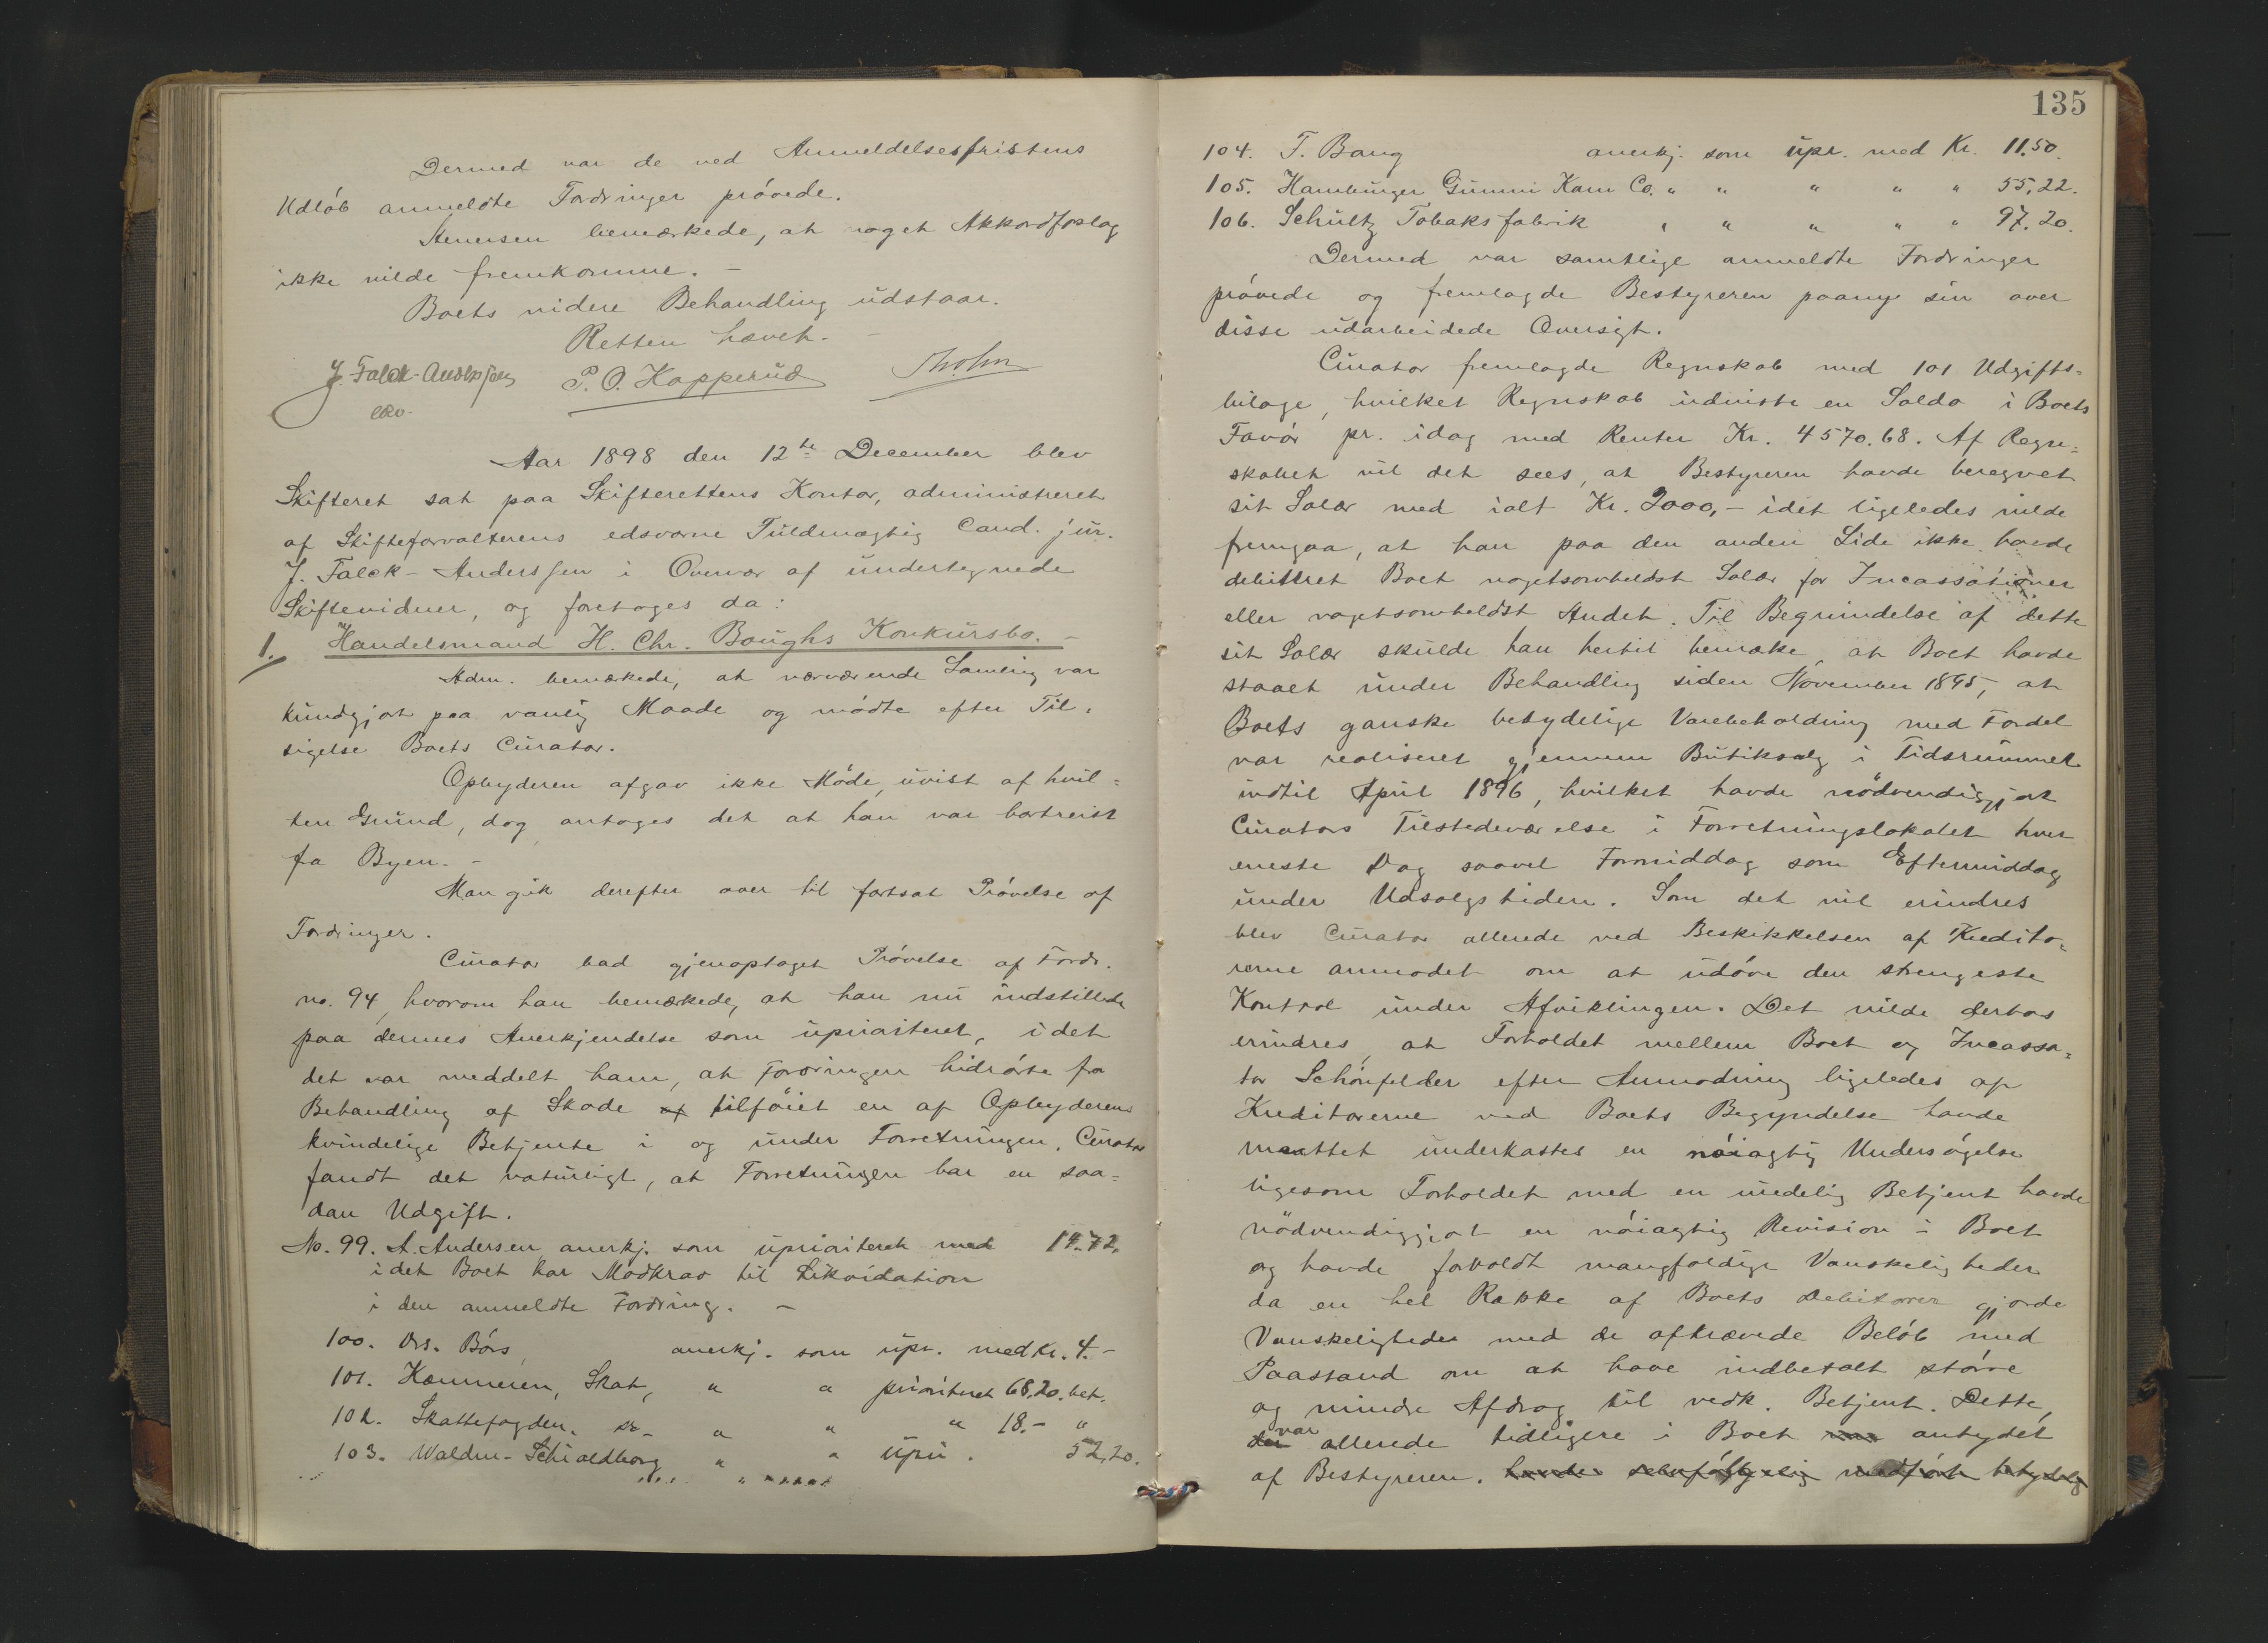 Dermed var de ved Anmeldelsesfristens
Udløb anmeldte Fordringer prøvede.
bemærkede, at noget Akkordforslag
ikke vilde fremkomme. –
Boets videre Behandling udstaar.
Retten hævet. –
J. Falck-Anderssen P. O. Kopperud
Aar 1898 den 12te December blev
Skifteret sat paa Skifterettens Kontor, administreret
af Skifteforvalterens edsvorne Fuldmægtig Cand. jur.
J. Falck-Anderssen i Overvær af undertegnede
Skiftevidner, og foretoges da:
1. Handelsmand H. Chr. Boughs Konkursbo. –
Adm. bemærkede, at nærværende Samling var
kundgjort paa vanlig Maade og mødte efter Til-
sigelse Boets Curator.
Opbyderen afgav ikke Møde, uvist af hvil-
ken Grund, dog antoges det at han var bortreist
fra Byen. –
Man gik derefter over til fortsat Prøvelse af
Fordringer.
Curator bad gjenoptaget Prøvelse af Fordr.
no. 94, hvorom han bemærkede, at han nu indstillede
paa dennes Anerkjendelse som uprioriteret, idet
det var meddelt ham, at Fordringen hidrørte fra
Behandling af Skade af tilføiet en af Opbyderens
kvindelige Betjente i og under Forretningen. Curator
fandt det naturligt, at Forretningen bar en saa-
dan Udgift.
No. 99. A. Andersen, anerkj. som uprioriteret med 17.72,
idet Boet har Modkrav til Likvidation
i den anmeldte Fordring. –
100. Drs. Børs, anerkj. som upr. med Kr. 4.–
101. Kæmneren, Skat, " " prioriteret 68,20. bet.
102. Skattefogden, do– " " " 18.– "
103. Waldm. Schioldborg " " upri. 52,20.
135
104. T. Bang anerkj. som upr. med Kr. 11.50.
105. Hamburger Gummi Kam Co. " " " " " 55,22.
106. Schultz Tobaksfabrik " " " " " 97.20.
Dermed var samtlige anmeldte Fordringer
prøvede og fremlagde Bestyreren paany sin over
disse udarbeidede Oversigt.
Curator fremlagde Regnskab med 101 Udgifts-
bilage, hvilket Regnskab udviste en Saldo i Boets
Favør pr. idag med Renter Kr. 4570.68. Af Regn-
skabet vil det sees, at Bestyreren havde beregnet
sit Salær med ialt Kr. 2000,– idet ligeledes vilde
fremgaa, at han paa den anden Side ikke havde
debiteret Boet nogetsomheldst Salær for Incassationer
eller nogetsomheldst Andet. Til Begrundelse af dette
sit Salær skulde han hertil bemærke, at Boet havde
staaet under Behandling siden November 1895, at
Boets ganske betydelige Varebeholdning med Fordel
var realiseret gjennem Butiksalg i Tidsrummet
indtil April 1896, hvilket havde nødvendiggjort
Curators Tilstedeværelse i Forretningslokalet hver
eneste Dag saavel Formiddag som Eftermiddag
under Udsalgstiden. Som det vil erindres
blev Curator allerede ved Beskikkelsen af Kredito-
rerne anmodet om at udøve den strengeste
Kontrol under Afviklingen. Det vilde derhos
erindres, at Forholdet mellem Boet og Incassa-
tor Schönfelder efter Anmodning ligeledes af
Kreditorerne ved Boets Begyndelse havde
maattet underkastes en nøiagtig Undersøgelse
ligesom Forholdet med en uredelig Betjent havde
nødvendiggjort en nøiagtig Revision i Boet
og havde forvoldt mangfoldige Vanskeligheder
da en hel Række af Boets Debitorer gjorde
Vanskeligheder med de afkrævede Beløb med
Paastand om at have indbetalt større
og mindre Afdrag til vedk. Betjent. Dette,
der var allerede tidligere i Boet var antydet
af Bestyreren. havde selvfølgelig medført betydelig